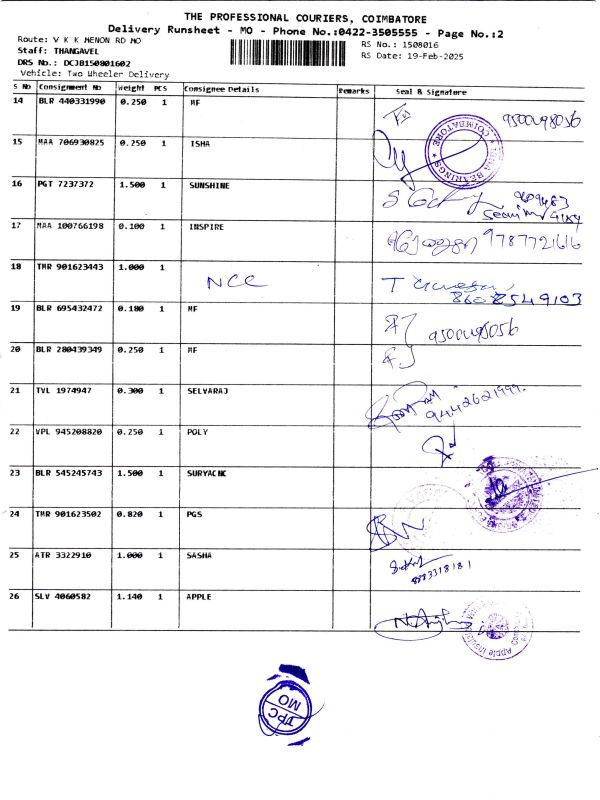 THE PROFESSIONAL COURIERS, COIMBATORE
Delivery Runsheet - MO - Phone No.:0422-3505555 - Page No.:2
Route: V K K MENON RD MO
RS No.: 1508016
Staff: THANGAVEL
RS Date: 19-Feb-2025
DRS No.: DCJB150801602
Vehicle: Two Wheeler Delivery
S No Consignment No Weight PCS Consignee Details Remarks Seal & Signature
14 BLR 440331990 0.250 1 MF 9500498056
15 MAA 706930825 0.250 1 ISHA
COIMBATORE BEARINGS
16 PGT 7237372 1.500 1 SUNSHINE
17 MAA 100766198 0.100 1 INSPIRE 9787721616
18 TMR 901623443 1.000 1 NCC
8608549103
19 BLR 695432472 0.180 1 MF 9500498056
20 BLR 280439349 0.250 1 MF
21 TVL 1974947 0.300 1 SELVARAJ 9442621999
22 VPL 945208820 0.250 1 POLY
23 BLR 545245743 1.500 1 SURYACNC
24 TMR 901623502 0.820 1 PGS
25 ATR 3322910 1.000 1 SASHA
26 SLV 4060582 1.140 1 APPLE
TPC
MO